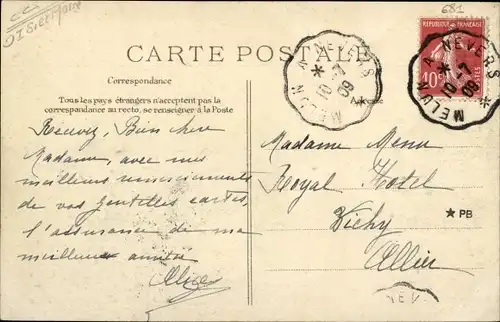 681
CARTE POSTALE
RÉPUBLIQUE FRANÇAISE
10
MELUN A NEVERS
10 -7
09
MELUN A NEVERS
10 -7
09
Correspondance
Tous les pays étrangers n'acceptent pas la
correspondance au recto, se renseigner à la Poste
Recevez, Bien chère
Madame, avec mes
meilleurs remerciements
de vos gentilles cartes,
l'assurance de ma
meilleure amitié
Alice
Madame Menu
Royal Hotel
Vichy
Allier
★ PB
NEV